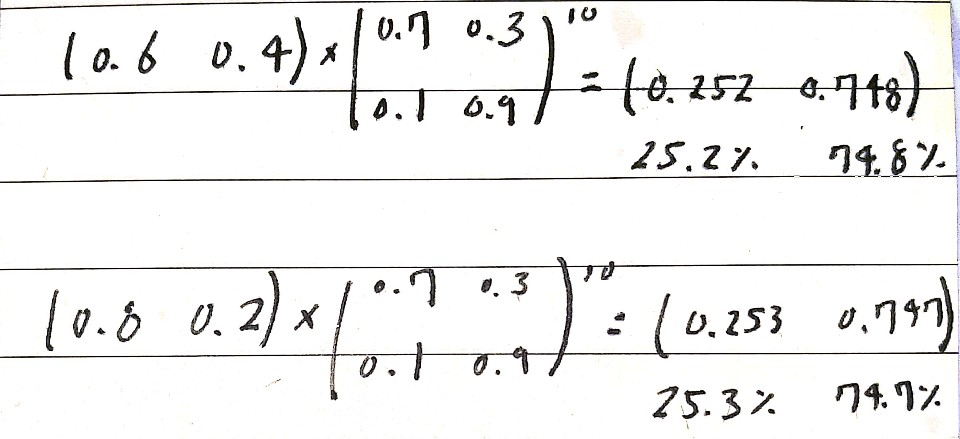 (0.6 0.4) × (0.7 0.3
0.1 0.9)^10 = (0.252 0.748)
25.2% 74.8%
(0.8 0.2) × (0.7 0.3
0.1 0.9)^10 = (0.253 0.747)
25.3% 74.7%